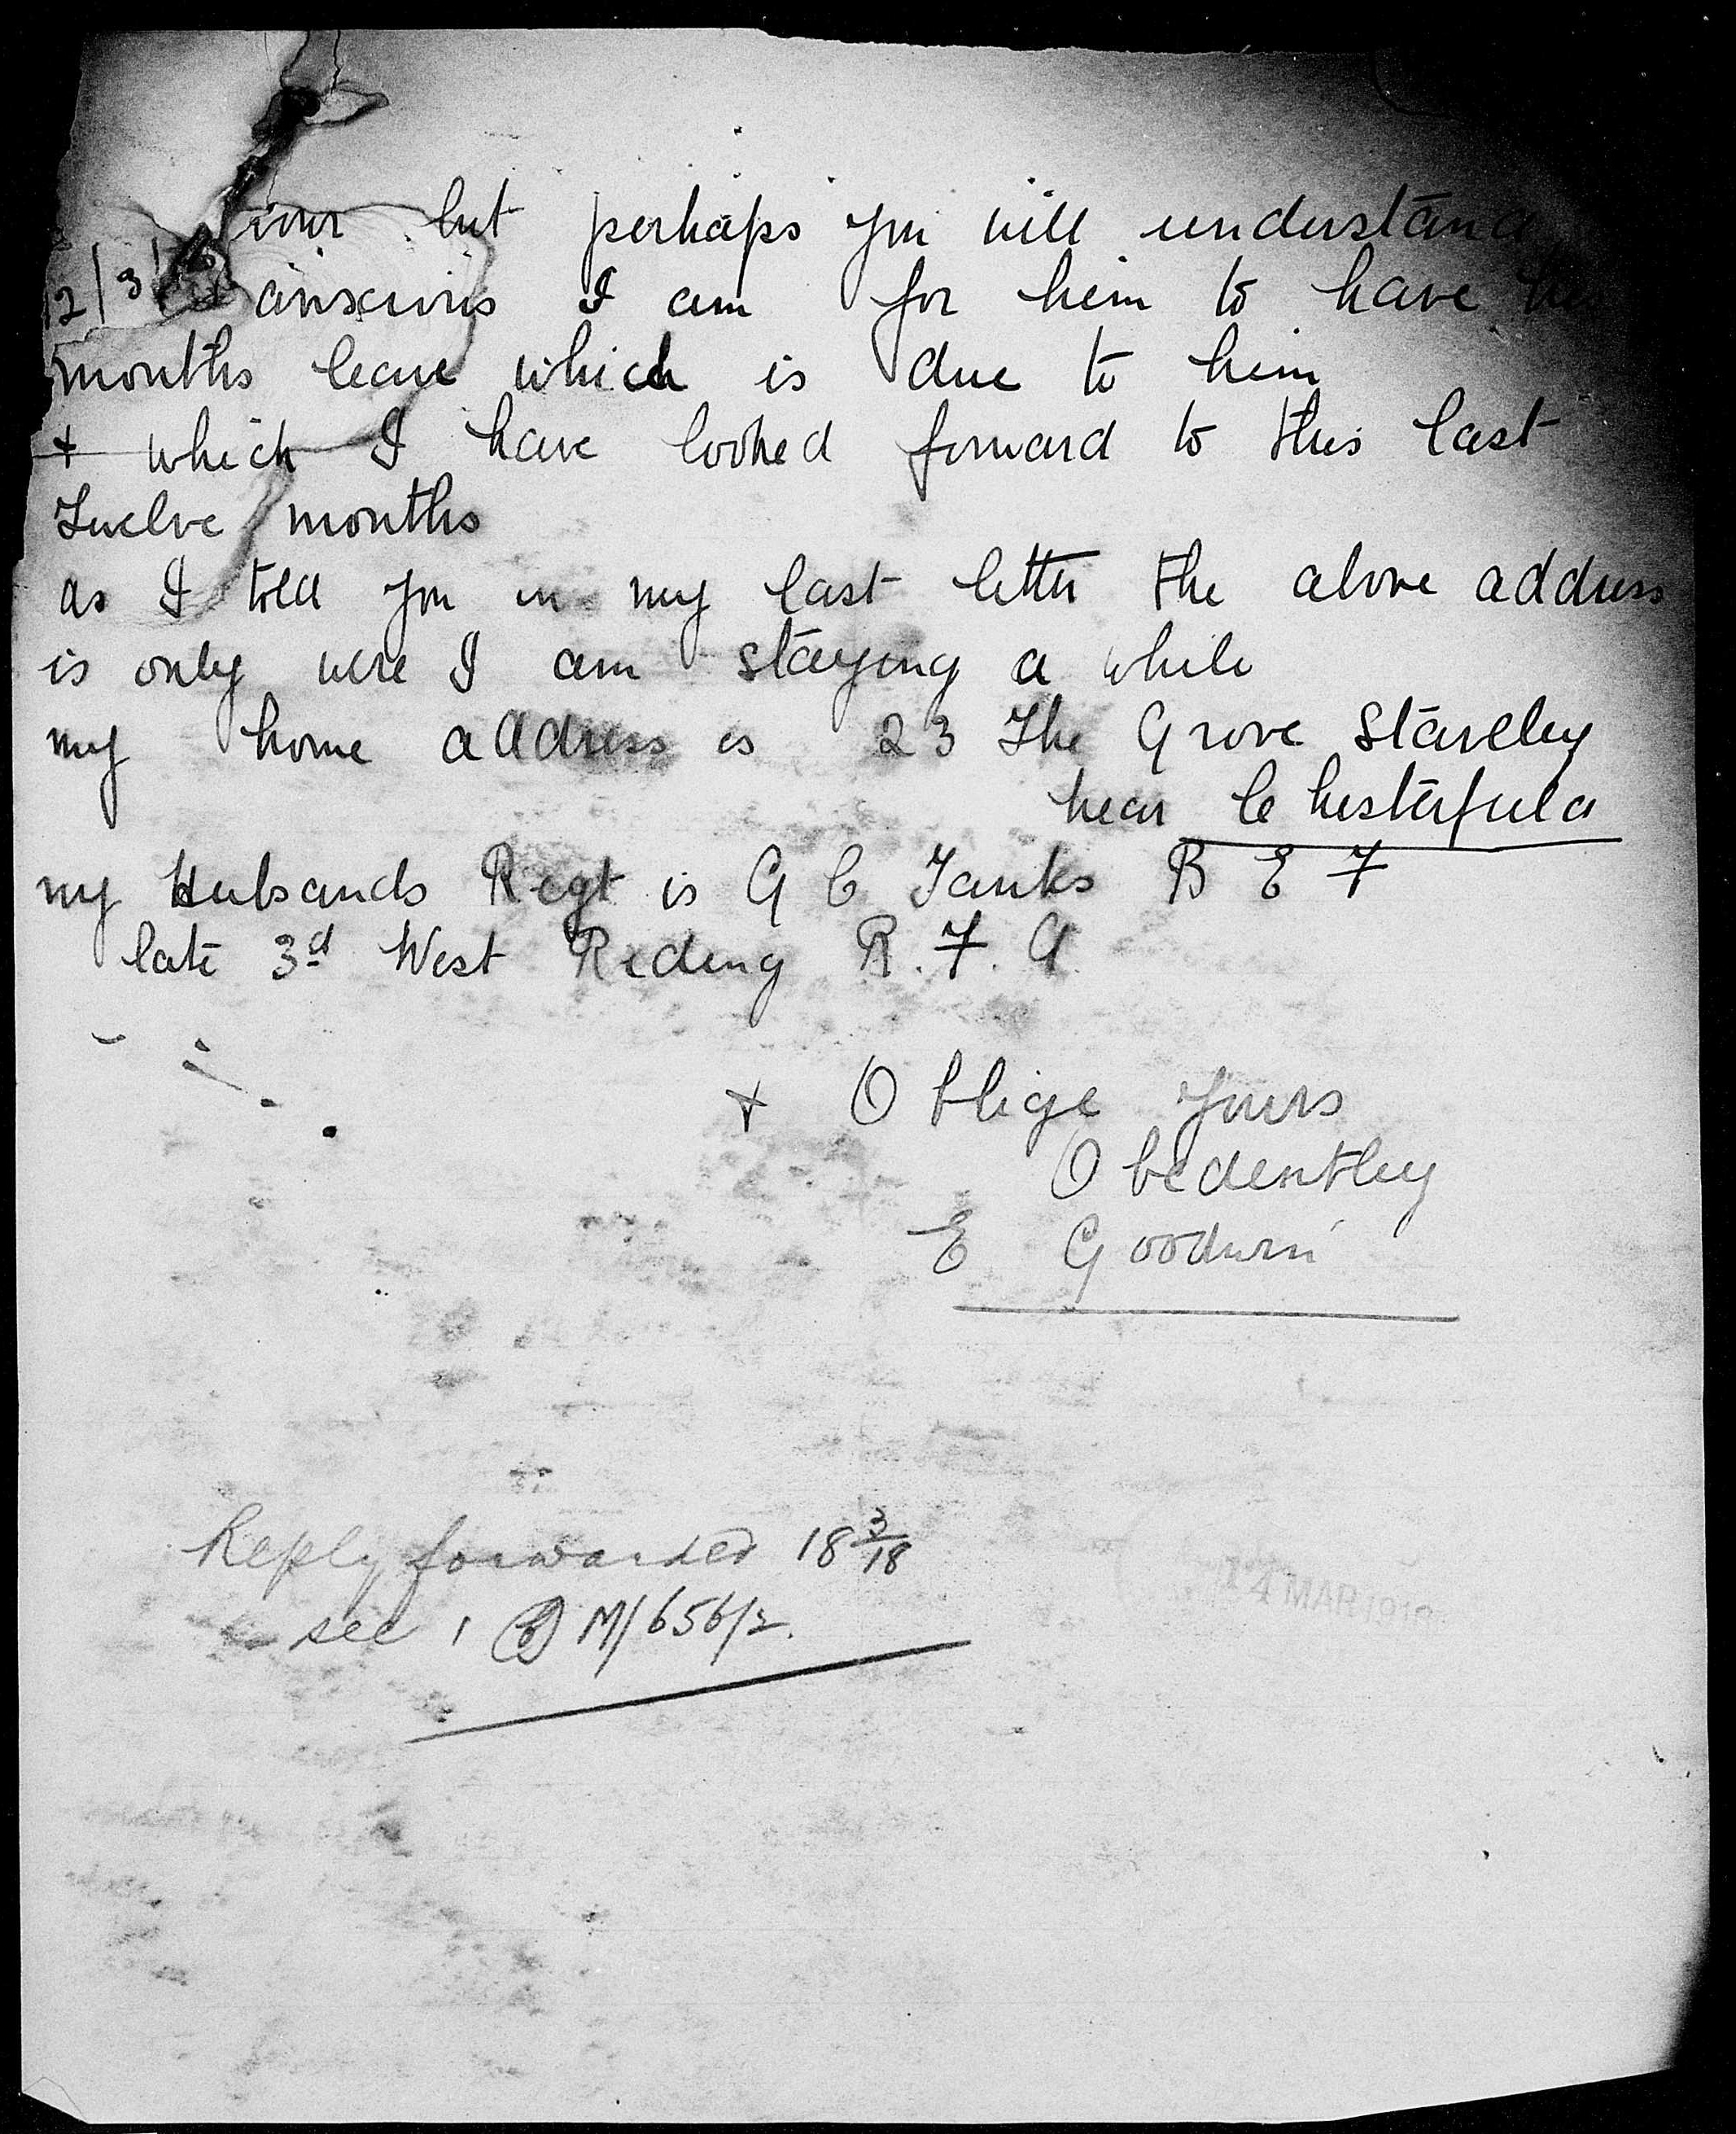 but perhaps you will understand
12/3/
anxious I am for him to have his
months leave which is due to him
+ which I have looked forward to this last
Twelve months
as I told you in my last letter the above address
is only were I am staying a while
my home address is 23 The Grove Staveley
near Chesterfield
my Husbands Regt is G C Tanks B E F
late 3rd West Reding R.F.A
+ Oblige yours
Obedentley
E Goodwin
Reply forwarded 18 3/18
see M/656/2.
14 MAR 1918